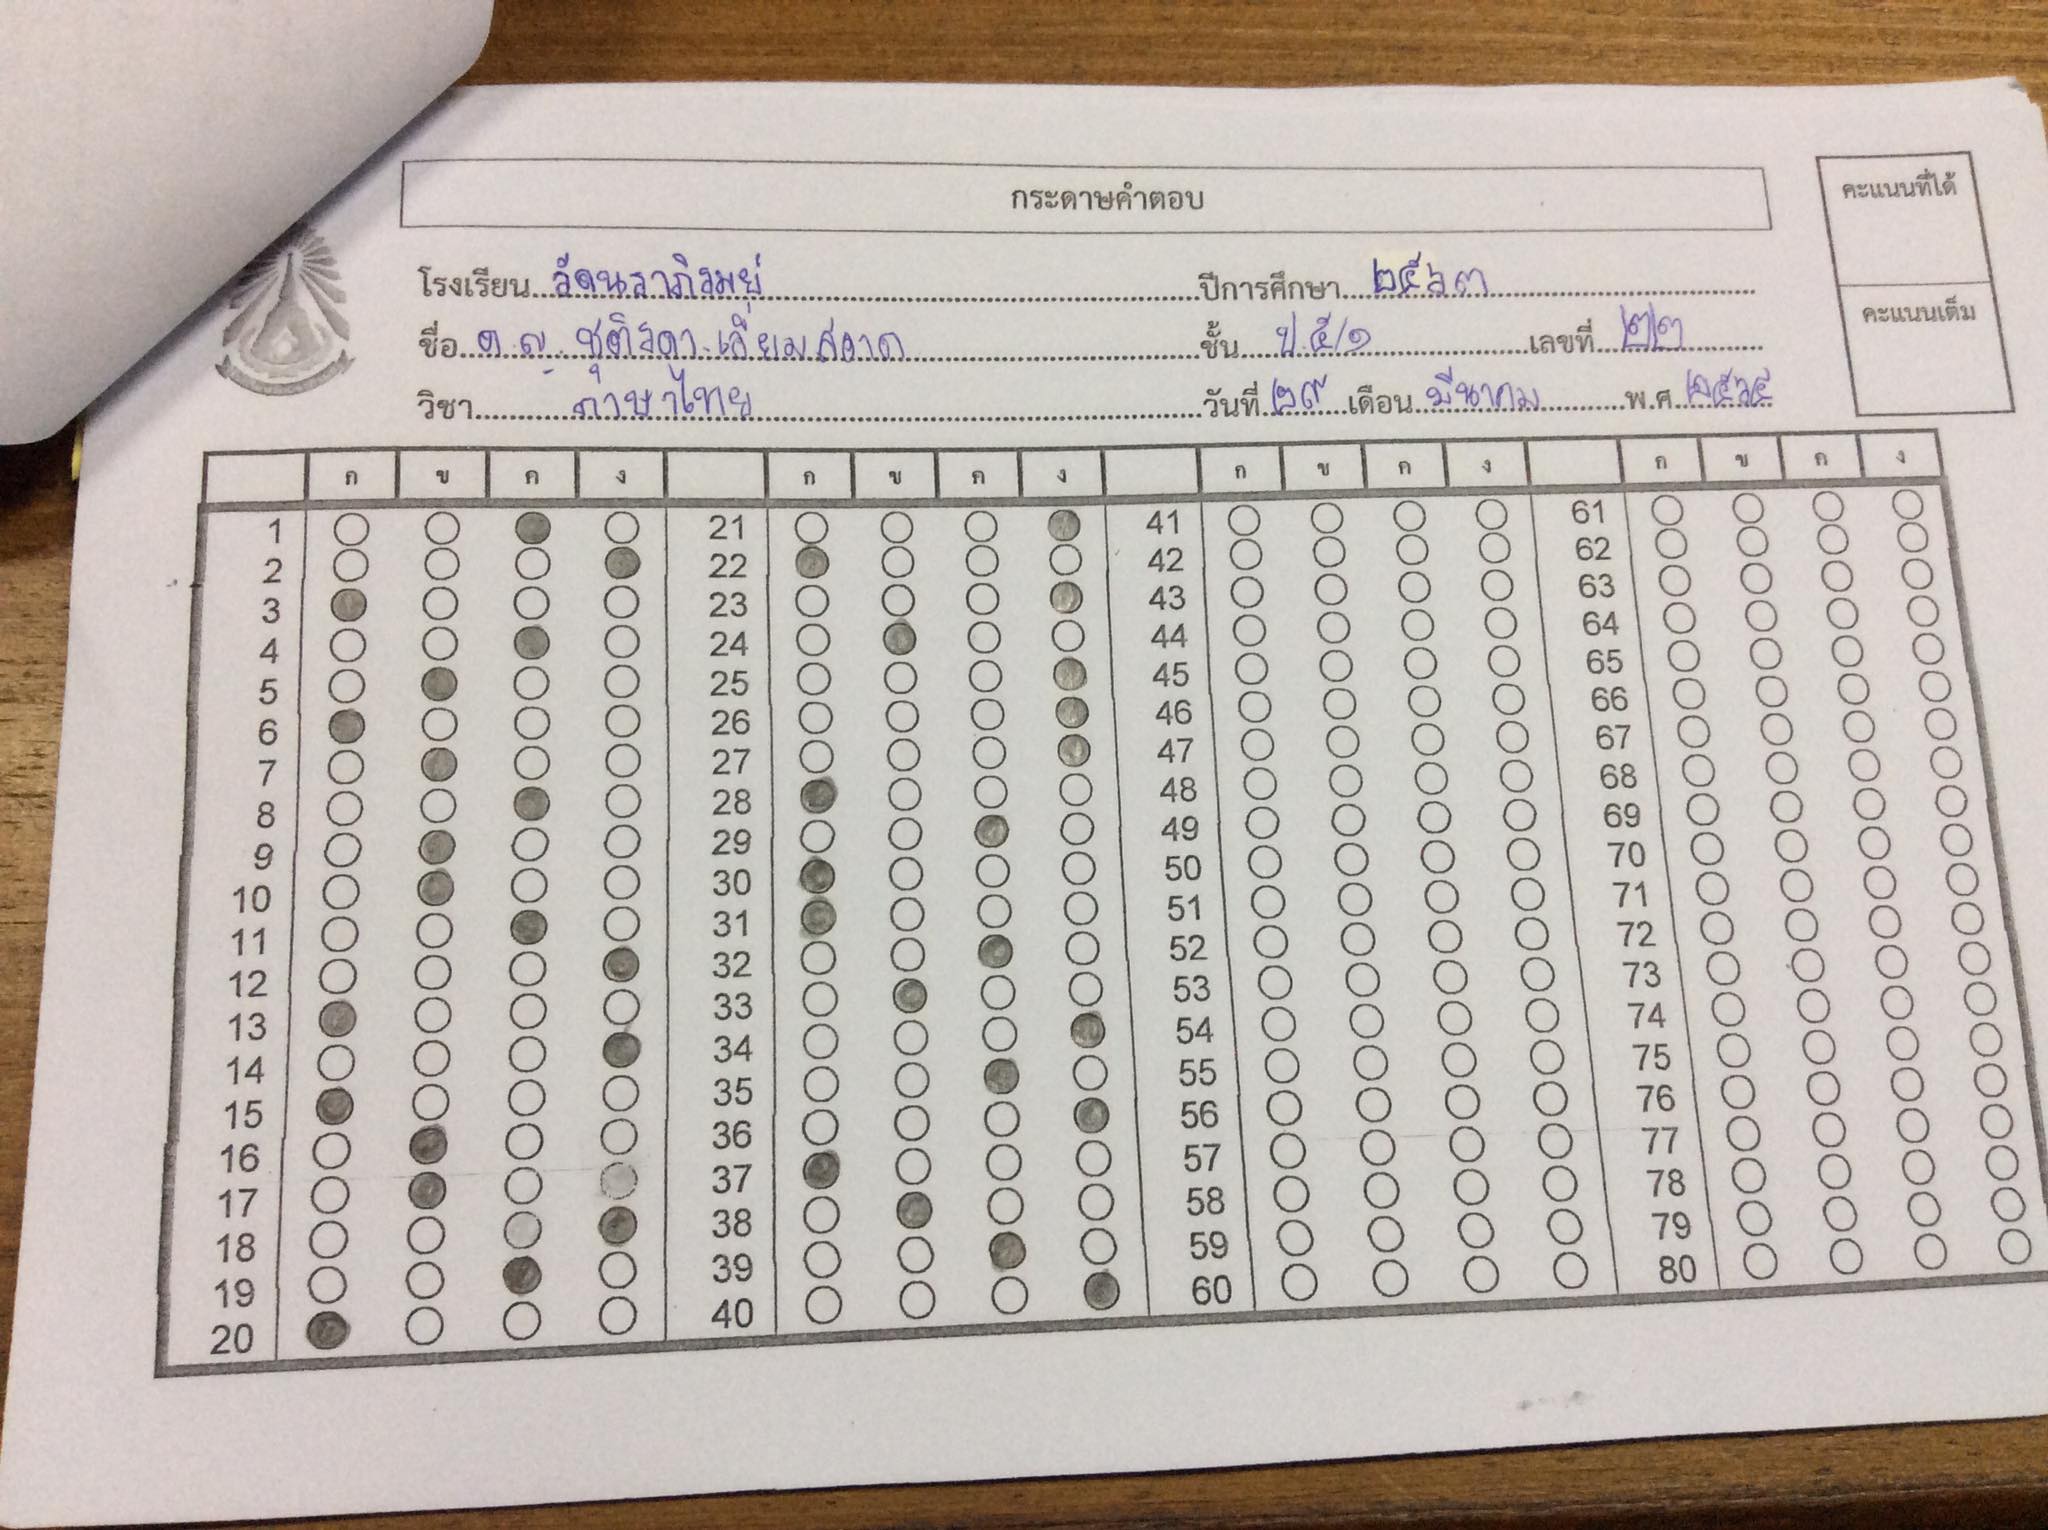 กระดาษคำตอบ
คะแนนที่ได้
คะแนนเต็ม
โรงเรียน วัดนราภิรมย์ ปีการศึกษา ๒๕๖๓
ชื่อ ด.ญ. ชุติงดา เอี่ยมสอาด ชั้น ป.๕/๑ เลขที่ ๒๒
วิชา ภาษาไทย วันที่ ๒๙ เดือน มีนาคม พ.ศ ๒๕๖๔
ก ข ค ง ก ข ค ง ก ข ค ง ก ข ค ง
1 21 41 61
2 22 42 62
3 23 43 63
4 24 44 64
5 25 45 65
6 26 46 66
7 27 47 67
8 28 48 68
9 29 49 69
10 30 50 70
11 31 51 71
12 32 52 72
13 33 53 73
14 34 54 74
15 35 55 75
16 36 56 76
17 37 57 77
18 38 58 78
19 39 59 79
20 40 60 80